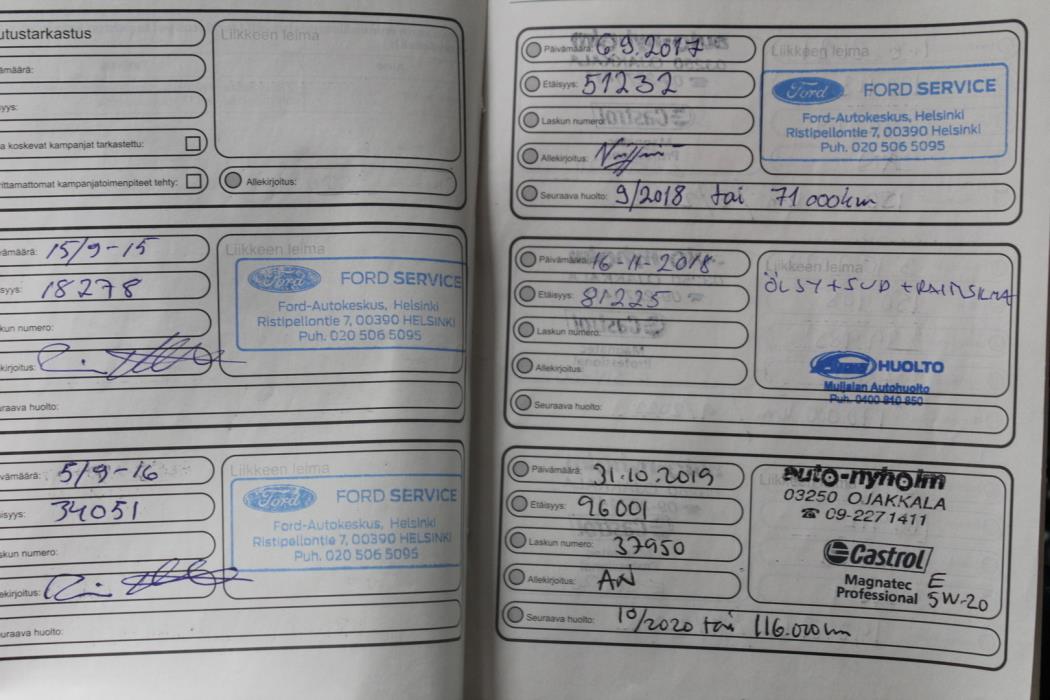 utustarkastus
Liikkeen leima
ämäärä:
syys:
a koskevat kampanjat tarkastettu:
rittamattomat kampanjatoimenpiteet tehty:
Allekirjoitus:
vämäärä: 15/9-15
Liikkeen leima
syys: 18278
kun numero:
ekirjoitus:
uraava huolto:
Ford FORD SERVICE
Ford-Autokeskus, Helsinki
Ristipellontie 7, 00390 HELSINKI
Puh. 020 506 5095
vämäärä: 5/9-16
Liikkeen leima
isyys: 34051
kun numero:
ekirjoitus:
euraava huolto:
Ford FORD SERVICE
Ford-Autokeskus, Helsinki
Ristipellontie 7, 00390 HELSINKI
Puh. 020 506 5095
Päivämäärä: 6.9.2017
Liikkeen leima
Etäisyys: 51232
Laskun numero:
Allekirjoitus:
Seuraava huolto: 9/2018 tai 71 000km
Ford FORD SERVICE
Ford-Autokeskus, Helsinki
Ristipellontie 7, 00390 HELSINKI
Puh. 020 506 5095
Päivämäärä: 16-11-2018
Liikkeen leima
Etäisyys: 81225
ÖLJY+SUD+RAITISILMA
Laskun numero:
Allekirjoitus:
Seuraava huolto:
HUOLTO
Mullalan Autohuolto
Puh. 0400 810 850
Päivämäärä: 31.10.2019
Etäisyys: 96001
Laskun numero: 37950
Allekirjoitus: AN
Seuraava huolto: 10/2020 tai 116.000km
auto-nyholm
03250 OJAKKALA
☎ 09-2271411
Castrol
Magnatec E
Professional 5W-20